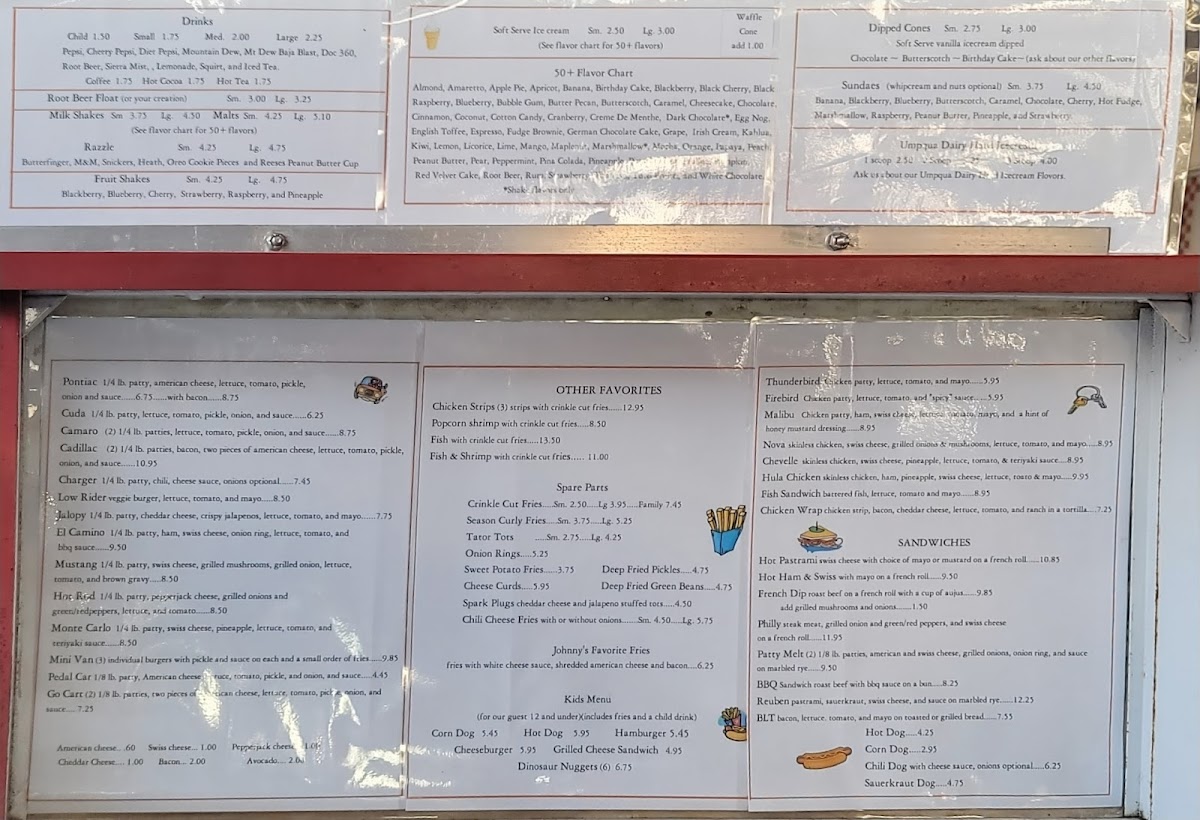 Drinks
Child 1.50 Small 1.75 Med. 2.00 Large 2.25
Pepsi, Cherry Pepsi, Diet Pepsi, Mountain Dew, Mt Dew Baja Blast, Doc 360,
Root Beer, Sierra Mist, , Lemonade, Squirt, and Iced Tea.
Coffee 1.75 Hot Cocoa 1.75 Hot Tea 1.75
Root Beer Float (or your creation) Sm. 3.00 Lg. 3.25
Milk Shakes Sm 3.75 Lg. 4.50 Malts Sm. 4.25 Lg. 5.10
(See flavor chart for 50+ flavors)
Razzle Sm. 4.25 Lg. 4.75
Butterfinger, M&M, Snickers, Heath, Oreo Cookie Pieces and Reeses Peanut Butter Cup
Fruit Shakes Sm. 4.25 Lg. 4.75
Blackberry, Blueberry, Cherry, Strawberry, Raspberry, and Pineapple
Soft Serve Ice cream Sm. 2.50 Lg. 3.00
(See flavor chart for 50+ flavors)
Waffle
Cone
add 1.00
50+ Flavor Chart
Almond, Amaretto, Apple Pie, Apricot, Banana, Birthday Cake, Blackberry, Black Cherry, Black
Raspberry, Blueberry, Bubble Gum, Butter Pecan, Butterscotch, Caramel, Cheesecake, Chocolate,
Cinnamon, Coconut, Cotton Candy, Cranberry, Creme De Menthe, Dark Chocolate*, Egg Nog,
English Toffee, Espresso, Fudge Brownie, German Chocolate Cake, Grape, Irish Cream, Kahlua,
Kiwi, Lemon, Licorice, Lime, Mango, Maplenut, Marshmallow*, Mocha, Orange, Papaya, Peach
Peanut Butter, Pear, Peppermint, Pina Colada, Pineapple,
Red Velvet Cake, Root Beer, Rum, Strawberry, and White Chocolate.
*Shake flavors only
Dipped Cones Sm. 2.75 Lg. 3.00
Soft Serve vanilla icecream dipped
Chocolate ~ Butterscotch ~ Birthday Cake~ (ask about our other flavors)
Sundaes (whipcream and nuts optional) Sm. 3.75 Lg. 4.50
Banana, Blackberry, Blueberry, Butterscotch, Caramel, Chocolate, Cherry, Hot Fudge,
Marshmallow, Raspberry, Peanut Butter, Pineapple, and Strawberry.
Umpqua Dairy Hard Icecream
1 scoop 2.50 2 Scoop 3 Scoop 4.00
Ask us about our Umpqua Dairy Hard Icecream Flavors.
Pontiac 1/4 lb. patty, american cheese, lettuce, tomato, pickle,
onion and sauce......6.75......with bacon......8.75
Cuda 1/4 lb. patty, lettuce, tomato, pickle, onion, and sauce......6.25
Camaro (2) 1/4 lb. patties, lettuce, tomato, pickle, onion, and sauce......8.75
Cadillac (2) 1/4 lb. patties, bacon, two pieces of american cheese, lettuce, tomato, pickle,
onion, and sauce......10.95
Charger 1/4 lb. patty, chili, cheese sauce, onions optional......7.45
Low Rider veggie burger, lettuce, tomato, and mayo.....8.50
Jalopy 1/4 lb. patty, cheddar cheese, crispy jalapenos, lettuce, tomato, and mayo......7.75
El Camino 1/4 lb. patty, ham, swiss cheese, onion ring, lettuce, tomato, and
bbq sauce.....9.50
Mustang 1/4 lb. patty, swiss cheese, grilled mushrooms, grilled onion, lettuce,
tomato, and brown gravy.....8.50
Hot Rod 1/4 lb. patty, pepperjack cheese, grilled onions and
green/redpeppers, lettuce, and tomato......8.50
Monte Carlo 1/4 lb. patty, swiss cheese, pineapple, lettuce, tomato, and
teriyaki sauce.....8.50
Mini Van (3) individual burgers with pickle and sauce on each and a small order of fries.....9.85
Pedal Car 1/8 lb. patty, American cheese, lettuce, tomato, pickle, and onion, and sauce.....4.45
Go Cart (2) 1/8 lb. patties, two pieces of american cheese, lettuce, tomato, pickle, onion, and
sauce.....7.25
American cheese.. .60 Swiss cheese... 1.00 Pepperjack cheese.. 1.00
Cheddar Cheese.... 1.00 Bacon... 2.00 Avocado... 2.00
OTHER FAVORITES
Chicken Strips (3) strips with crinkle cut fries.....12.95
Popcorn shrimp with crinkle cut fries.....8.50
Fish with crinkle cut fries.....13.50
Fish & Shrimp with crinkle cut fries..... 11.00
Spare Parts
Crinkle Cut Fries....Sm. 2.50.....Lg 3.95.....Family 7.45
Season Curly Fries....Sm. 3.75.....Lg. 5.25
Tator Tots .....Sm. 2.75.....Lg. 4.25
Onion Rings.....5.25
Sweet Potato Fries.....3.75 Deep Fried Pickles.....4.75
Cheese Curds.....5.95 Deep Fried Green Beans....4.75
Spark Plugs cheddar cheese and jalapeno stuffed tots.....4.50
Chili Cheese Fries with or without onions......Sm. 4.50.....Lg. 5.75
Johnny's Favorite Fries
fries with white cheese sauce, shredded american cheese and bacon....6.25
Kids Menu
(for our guest 12 and under)(includes fries and a child drink)
Corn Dog 5.45 Hot Dog 5.95 Hamburger 5.45
Cheeseburger 5.95 Grilled Cheese Sandwich 4.95
Dinosaur Nuggets (6) 6.75
Thunderbird Chicken patty, lettuce, tomato, and mayo.....5.95
Firebird Chicken patty, lettuce, tomato, and "spicy" sauce.....5.95
Malibu Chicken patty, ham, swiss cheese, lettuce, tomato, mayo, and a hint of
honey mustard dressing.....8.95
Nova skinless chicken, swiss cheese, grilled onions & mushrooms, lettuce, tomato, and mayo.....8.95
Chevelle skinless chicken, swiss cheese, pineapple, lettuce, tomato, & teriyaki sauce....8.95
Hula Chicken skinless chicken, ham, pineapple, swiss cheese, lettuce, toato & mayo.....9.95
Fish Sandwich battered fish, lettuce, tomato and mayo.....8.95
Chicken Wrap chicken strip, bacon, cheddar cheese, lettuce, tomato, and ranch in a tortilla....7.25
SANDWICHES
Hot Pastrami swiss cheese with choice of mayo or mustard on a french roll.....10.85
Hot Ham & Swiss with mayo on a french roll.....9.50
French Dip roast beef on a french roll with a cup of aujus.....9.85
add grilled mushrooms and onions......1.50
Philly steak meat, grilled onion and green/red peppers, and swiss cheese
on a french roll.....11.95
Patty Melt (2) 1/8 lb. patties, american and swiss cheese, grilled onions, onion ring, and sauce
on marbled rye.....9.50
BBQ Sandwich roast beef with bbq sauce on a bun.....8.25
Reuben pastrami, sauerkraut, swiss cheese, and sauce on marbled rye.....12.25
BLT bacon, lettuce, tomato, and mayo on toasted or grilled bread.....7.55
Hot Dog.....4.25
Corn Dog.....2.95
Chili Dog with cheese sauce, onions optional.....6.25
Sauerkraut Dog.....4.75